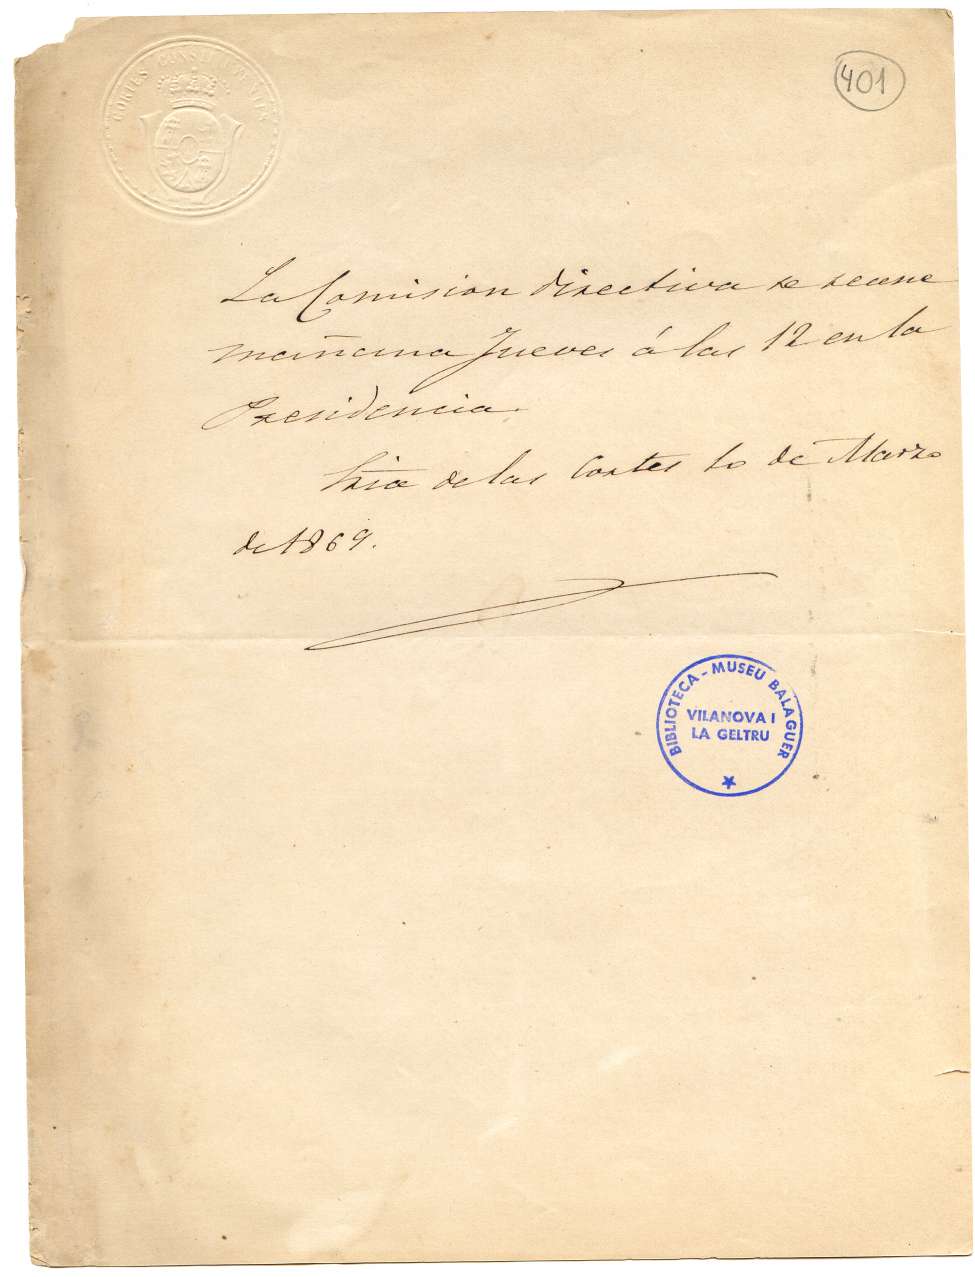 CORTES CONSTITUYENTES
401
La Comision directiva se reune
mañana Jueves á las 12 en la
Presidencia.
de las Cortes 10 de Marzo
de 1869.
BIBLIOTECA - MUSEU BALAGUER
VILANOVA I
LA GELTRU